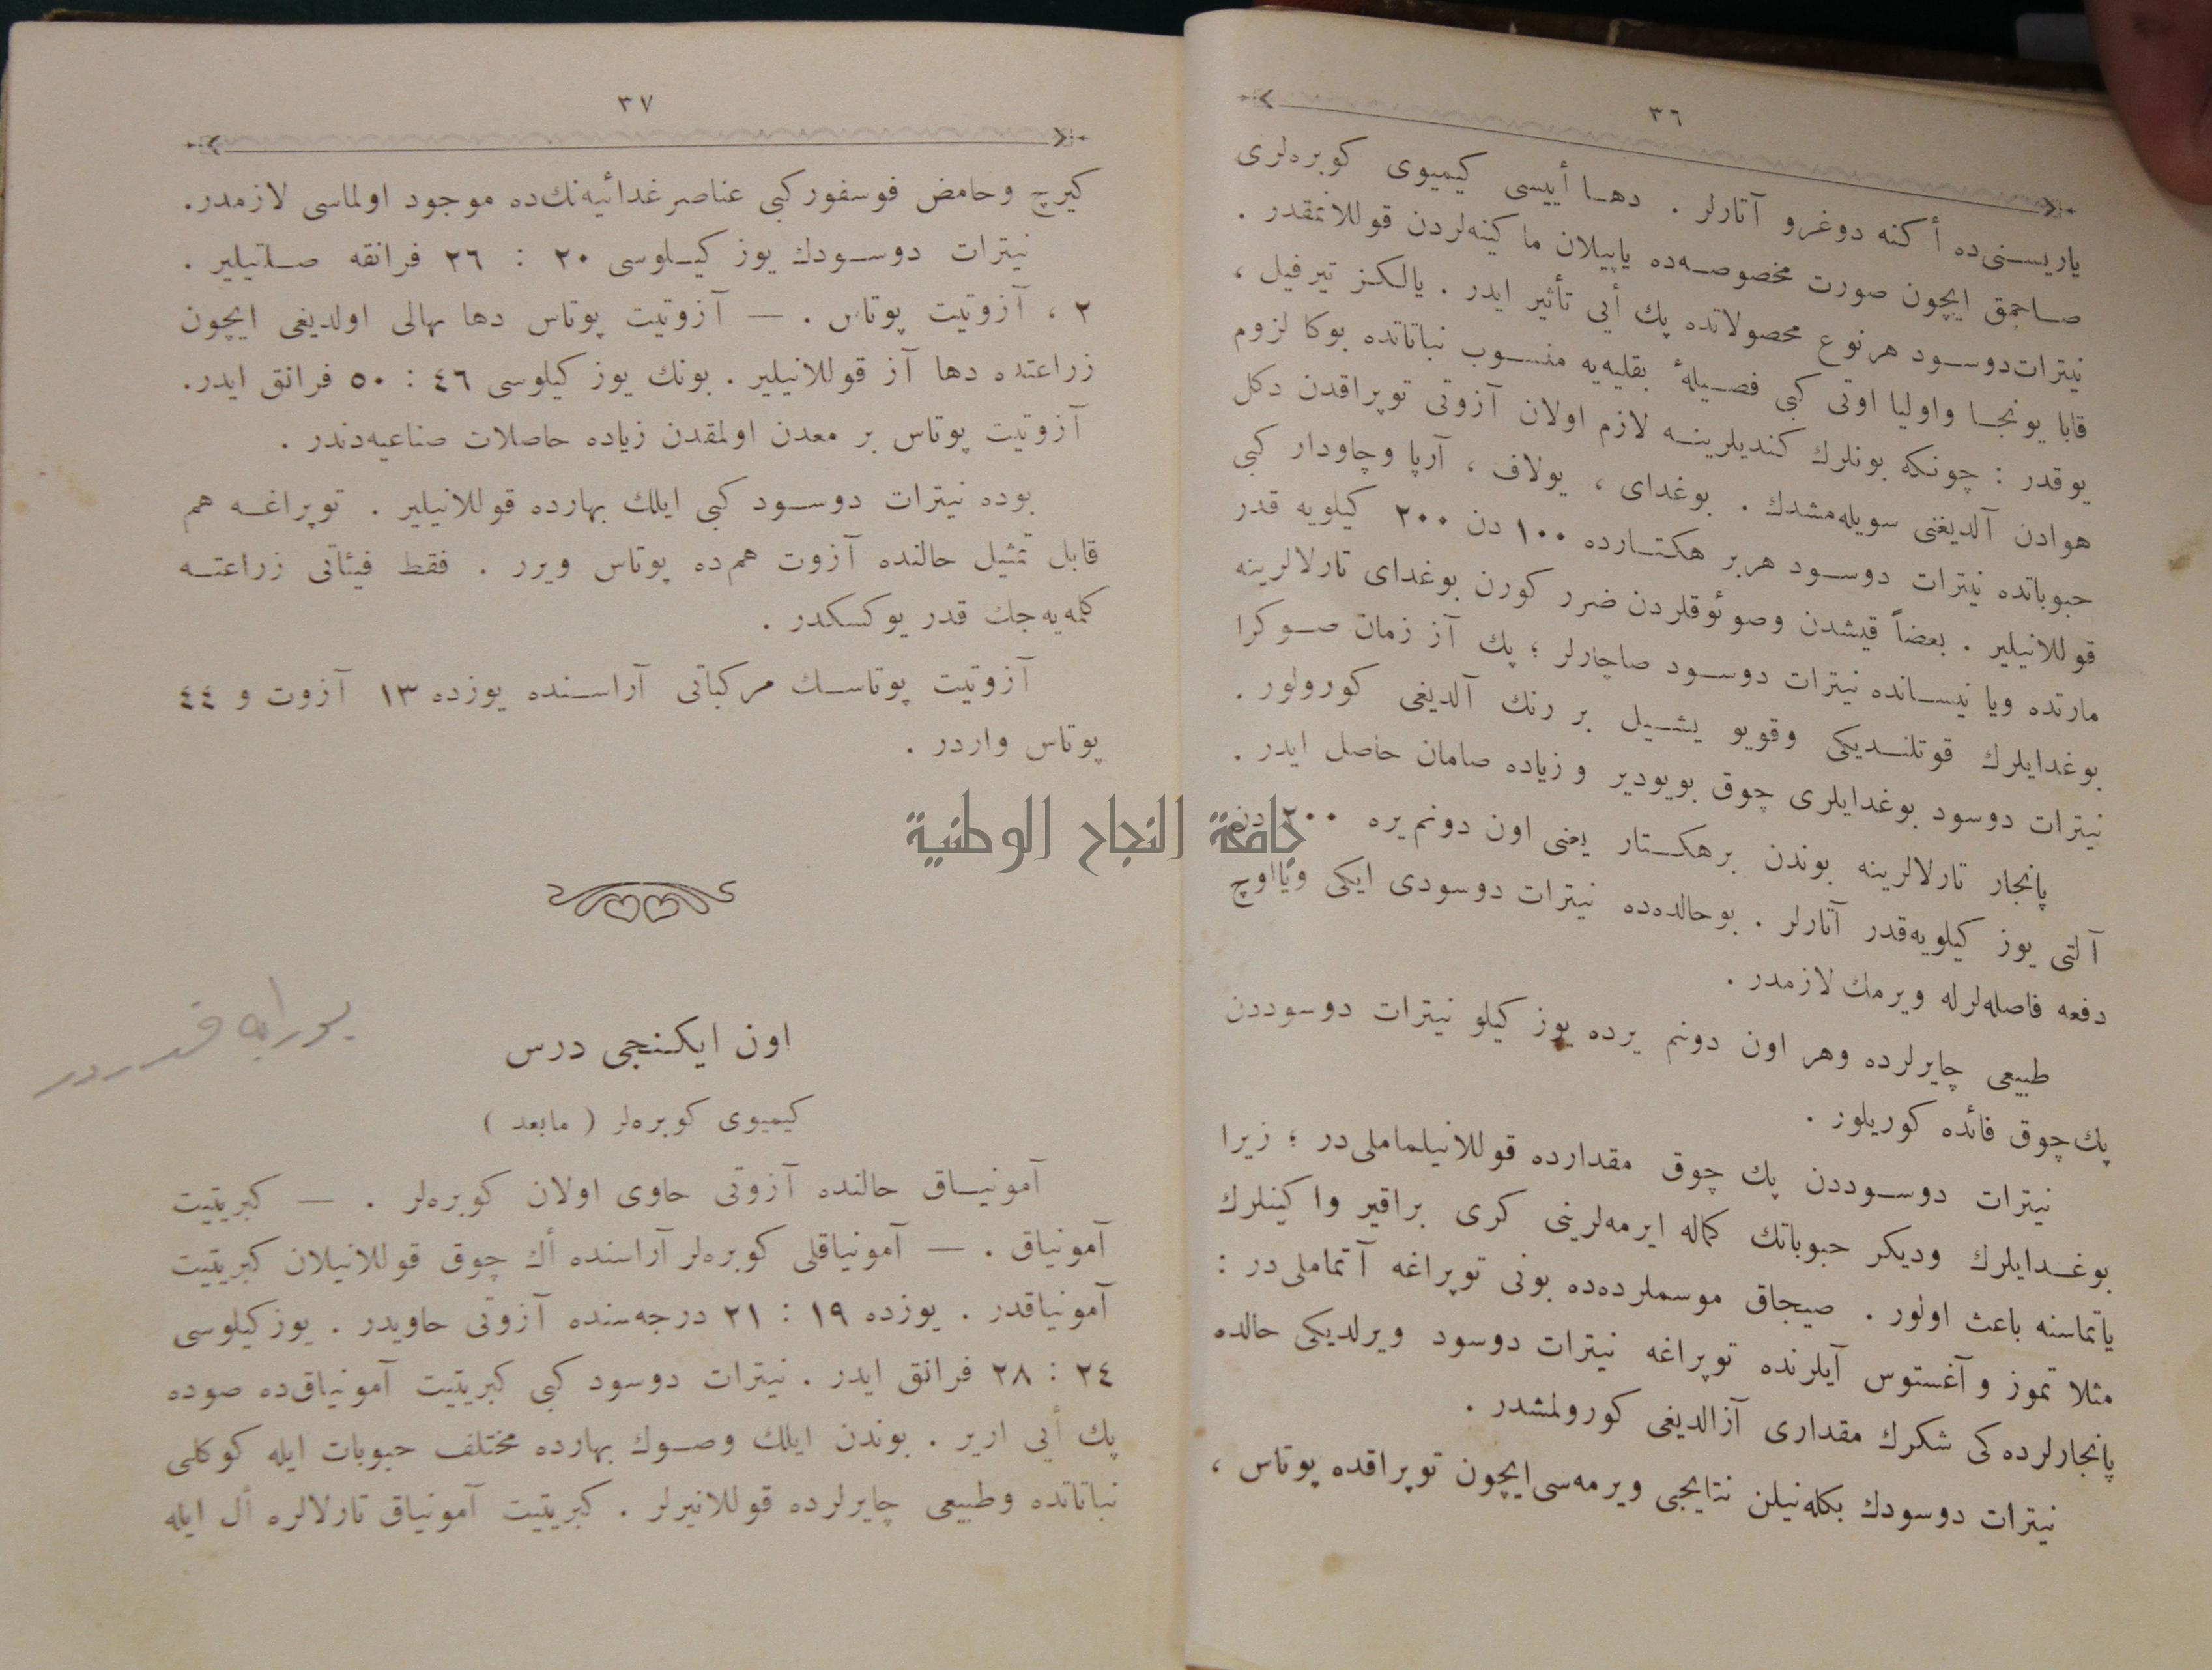 ٣٦
ياريسنى‌ده أكنه دوغرو آتارلر . دها أييسى كيميوى كوبره‌لرى
صاچمق ايچون صورت مخصوصه‌ده ياپيلان ماكينه‌لردن قوللانمقدر .
نيترات‌دوسود هرنوع محصولاتده پك أيي تأثير ايدر . يالكز تيرفيل ،
قابا يونجا واوليا اوتى كبى فصيلهٔ بقليه‌يه منسوب نباتاتده بوكا لزوم
يوقدر : چونكه بونلرك كنديلرينه لازم اولان آزوتى توپراقدن دكل
هوادن آلديغنى سويله‌مشدك . بوغداى ، يولاف ، آرپا وچاودار كبى
حبوباتده نيترات دوسود هربر هكتارده ١٠٠ دن ٢٠٠ كيلويه قدر
قوللانيلير . بعضاً قيشدن وصوئوقلردن ضرر كورن بوغداى تارلالرينه
مارتده ويا نيسانده نيترات دوسود صاچارلر ؛ پك آز زمان صوكرا
بوغدايلرك قوتلنديكى وقويو يشيل بر رنك آلديغى كورولور .
نيترات دوسود بوغدايلرى چوق بويودير و زياده صامان حاصل ايدر .
پانجار تارلالرينه بوندن برهكتار يعنى اون دونم‌يره ٢٠٠ دن
آلتى يوز كيلويه‌قدر آتارلر . بوحالده‌ده نيترات دوسودى ايكى ويااوچ
دفعه فاصله‌لرله ويرمك لازمدر .
طبيعى چايرلرده وهر اون دونم يرده يوز كيلو نيترات دوسوددن
پك چوق فائده كوريلور .
نيترات دوسوددن پك چوق مقدارده قوللانيلماملى‌در ؛ زيرا
بوغدايلرك وديكر حبوباتك كماله ايرمه‌لرينى كرى براقير واكينلرك
ياتماسنه باعث اولور . صيجاق موسملرده‌ده بونى توپراغه آتماملى‌در :
مثلا تموز و آغستوس آيلرنده توپراغه نيترات دوسود ويرلديكى حالده
پانجارلرده‌كى شكرك مقدارى آزالديغى كورولمشدر .
نيترات دوسودك بكله‌نيلن نتايجى ويرمه‌سى‌ايچون توپراقده پوتاس ،
٣٧
كيرچ وحامض فوسفور كبى عناصر غدائيه‌نك‌ده موجود اولماسى لازمدر.
نيترات دوسودك يوز كيلوسى ٢٠ : ٢٦ فرانقه صاتيلير .
٢ ، آزوتيت پوتاس . — آزوتيت پوتاس دها بهالى اولديغى ايچون
زراعتده دها آز قوللانيلير . بونك يوز كيلوسى ٤٦ : ٥٠ فرانق ايدر.
آزوتيت پوتاس بر معدن اولمقدن زياده حاصلات صناعيه‌دندر .
بوده نيترات دوسود كبى ايلك بهارده قوللانيلير . توپراغه هم
قابل تمثيل حالنده آزوت هم‌ده پوتاس ويرر . فقط فيئاتى زراعته
كلمه‌يه‌جك قدر يوكسكدر .
آزوتيت پوتاسك مركباتى آراسنده يوزده ١٣ آزوت و ٤٤
پوتاس واردر .
جامعة النجاح الوطنية
اون ايكنجى درس
كيميوى كوبره‌لر ( مابعد )
آمونياق حالنده آزوتى حاوى اولان كوبره‌لر . — كبريتيت
آمونياق . — آمونياقلى كوبره‌لر آراسنده أك چوق قوللانيلان كبريتيت
آمونياقدر . يوزده ١٩ : ٢١ درجه‌سنده آزوتى حاويدر . يوزكيلوسى
٢٤ : ٢٨ فرانق ايدر . نيترات دوسود كبى كبريتيت آمونياق‌ده صوده
پك أيي ارير . بوندن ايلك وصوك بهارده مختلف حبوبات ايله كوكلى
نباتاتده وطبيعى چايرلرده قوللانيرلر . كبريتيت آمونياق تارلالره أل ايله